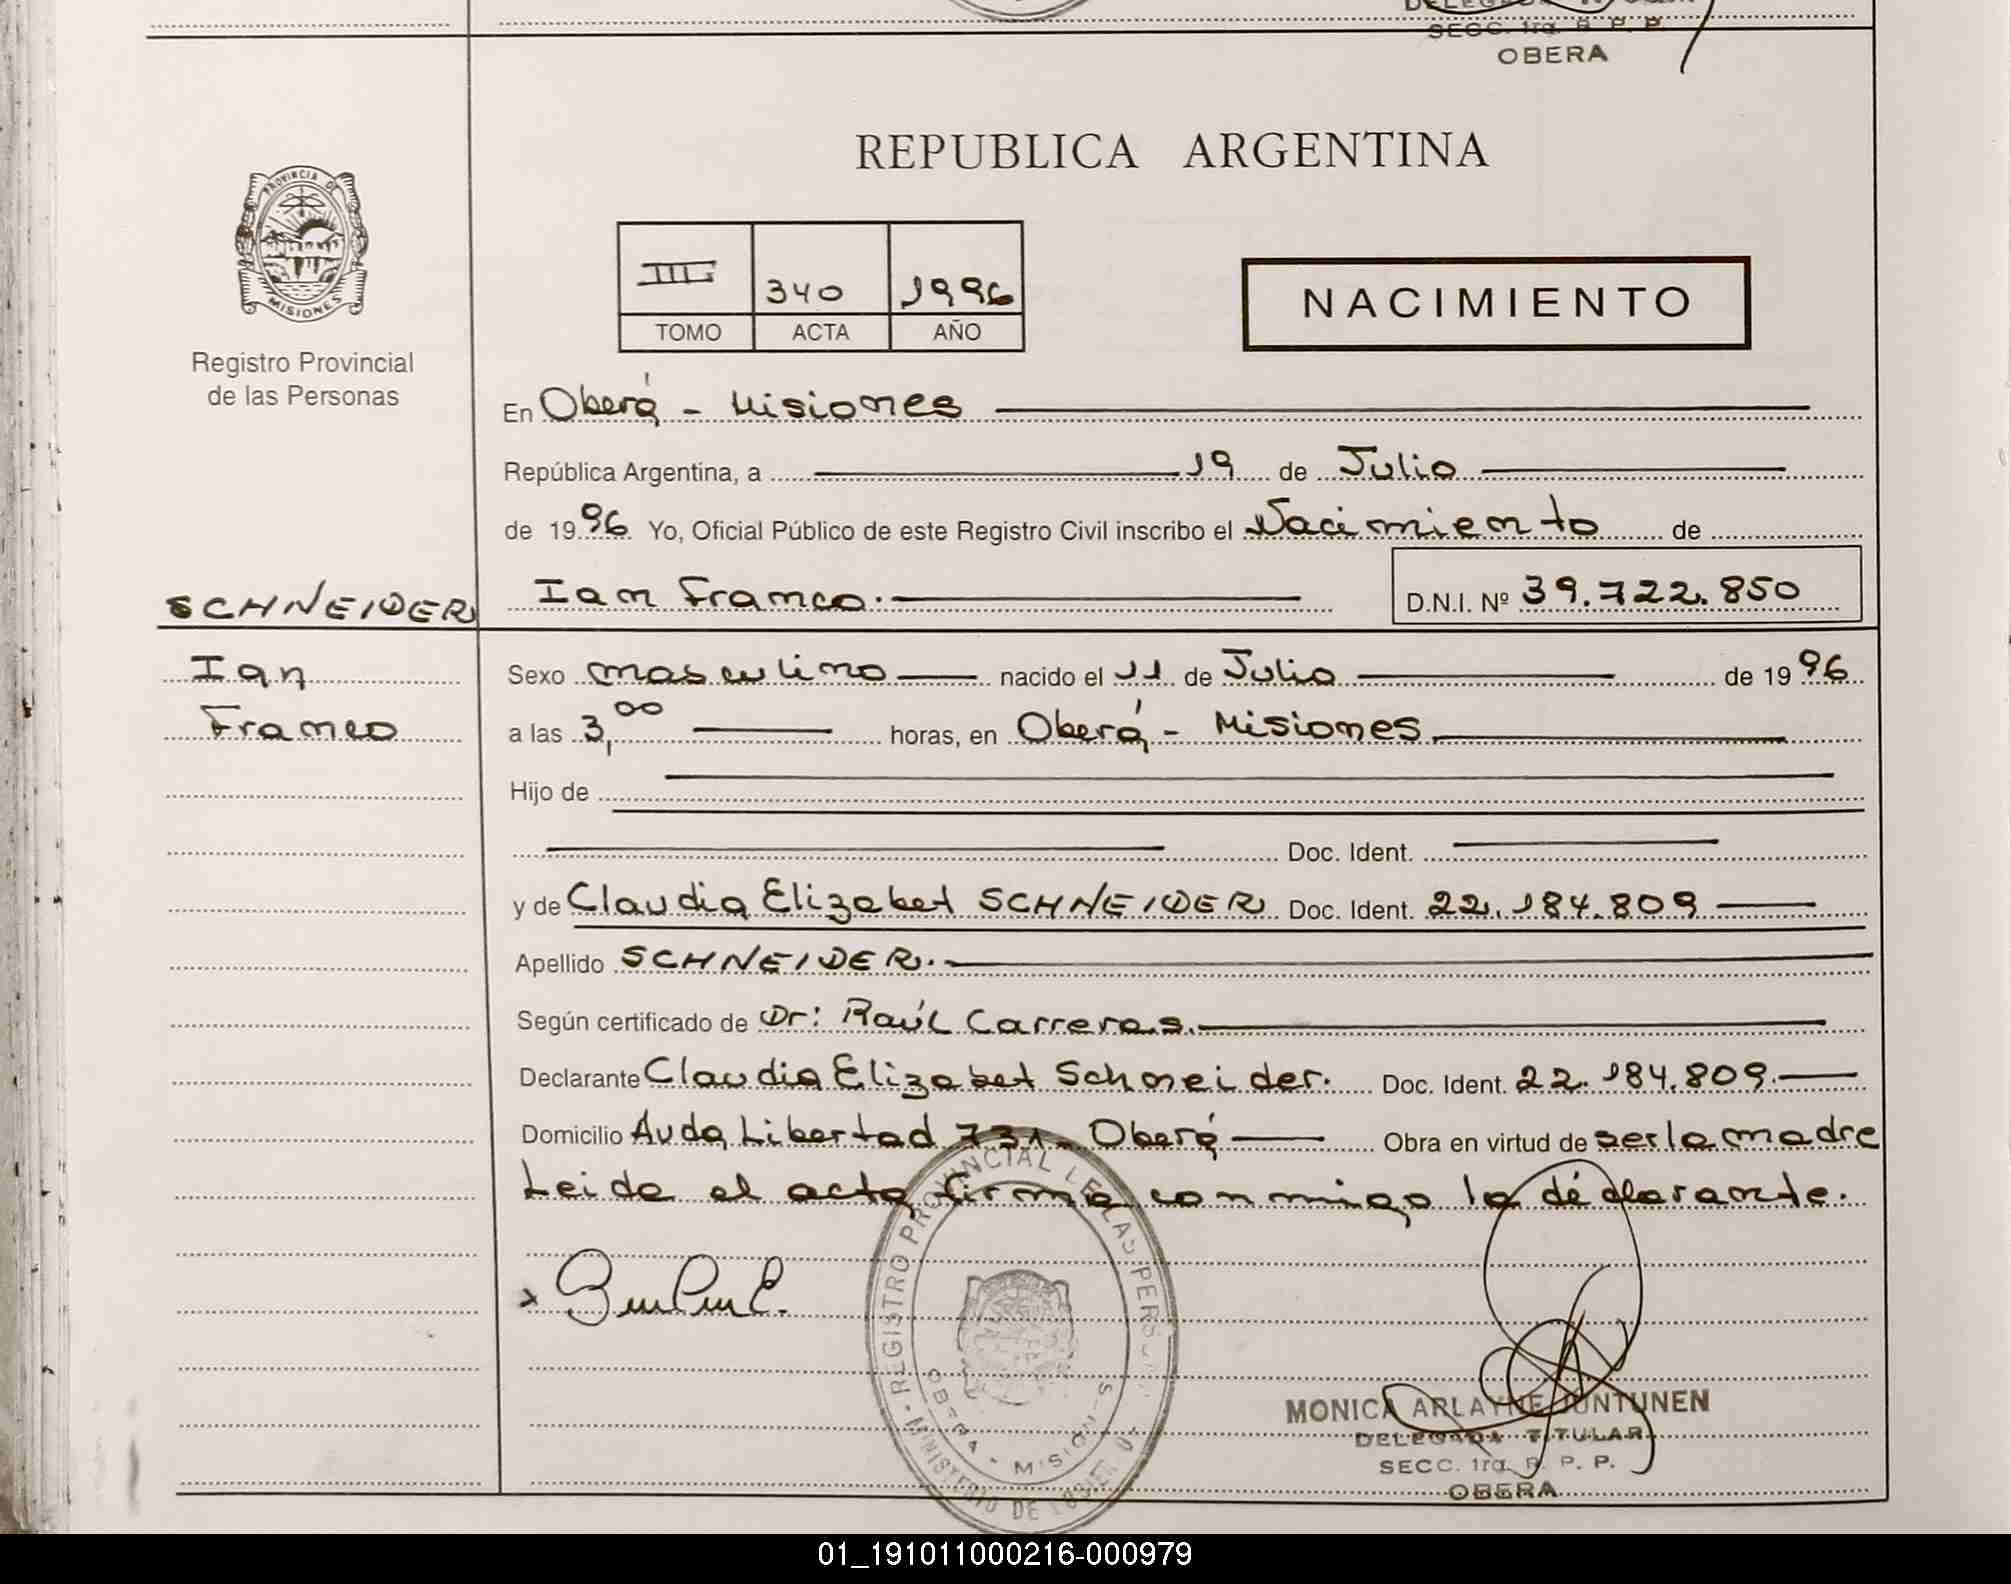 DELEGADA TITULAR
SECC. 1ra. R. P. P.
OBERA
PROVINCIA DE MISIONES
Registro Provincial
de las Personas
REPUBLICA ARGENTINA
III 340 1996
TOMO ACTA AÑO
NACIMIENTO
En Oberá - Misiones
República Argentina, a 19 de Julio
de 1996 Yo, Oficial Público de este Registro Civil inscribo el Nacimiento de
SCHNEIDER Ian Franco. D.N.I. Nº 39.722.850
Ian Sexo masculino nacido el 11 de Julio de 1996
Franco a las 3,00 horas, en Oberá - Misiones
Hijo de
Doc. Ident.
y de Claudia Elizabet SCHNEIDER Doc. Ident. 22.184.809
Apellido SCHNEIDER.
Según certificado de Dr: Raúl Carreras.
Declarante Claudia Elizabet Schneider. Doc. Ident. 22.184.809.
Domicilio Avda Libertad 731 - Oberá Obra en virtud de ser la madre
Leida el acta firma conmigo la declarante.
REGISTRO PROVINCIAL DE LAS PERSONAS
OBERA - MISIONES
MINISTERIO DE GOBIERNO
MONICA ARLAYNE JUNTUNEN
DELEGADA TITULAR
SECC. 1ra. R. P. P.
OBERA
01_191011000216-000979